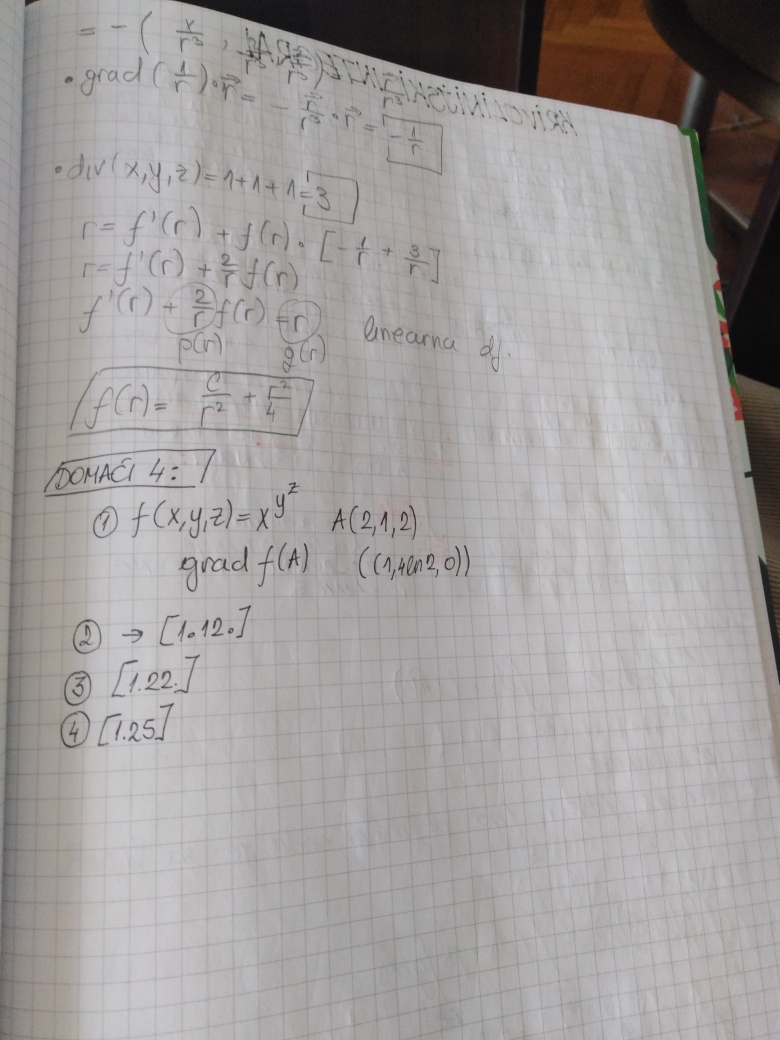 = - ( x/r³ , 
• grad (1/r) · r⃗ = - r⃗/r³ · r⃗ = - 1/r
• div (x,y,z) = 1+1+1 = 3
r = f'(r) + f(r) · [ - 1/r + 3/r ]
r = f'(r) + 2/r f(r)
f'(r) + 2/r f(r) = r linearna dj.
p(r) g(r)
f(r) = C/r² + r²/4
DOMAĆI 4:
① f(x,y,z) = x^y^z A(2,1,2)
grad f(A) ((1,4ln2,0))
② → [1.12.]
③ [1.22.]
④ [1.25]